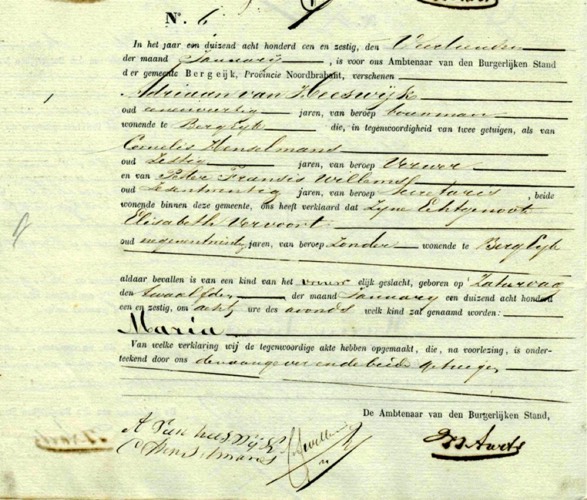 N.° 6
In het jaar een duizend acht honderd een en zestig, den Veertienden
der maand January, is voor ons Ambtenaar van den Burgerlijken Stand
der gemeente Bergeijk, Provincie Noordbrabant, verschenen
Adriaan van Heeswijk
oud jaren, van beroep bouwman
wonende te Bergeyk die, in tegenwoordigheid van twee getuigen, als van
Cornelis Henselmans
oud Zestig jaren, van beroep Verwer
en van Peter Francis Willems
oud jaren, van beroep Secretaris, beide
wonende binnen deze gemeente, ons heeft verklaard dat Zyne Echtgenoot
Elisabeth Vervoort
oud jaren, van beroep Zonder wonende te Bergeyk
aldaar bevallen is van een kind van het vrouwelijk geslacht, geboren op Zaturdag
den twaalfden der maand January een duizend acht honderd
een en zestig, om acht ure des avonds welk kind zal genaamd worden:
Maria
Van welke verklaring wij de tegenwoordige akte hebben opgemaakt, die, na voorlezing, is onder-
teekend door ons den aangever en de beide getuigen
De Ambtenaar van den Burgerlijken Stand,
A Van heeswijk
C Henselmans
Aarts